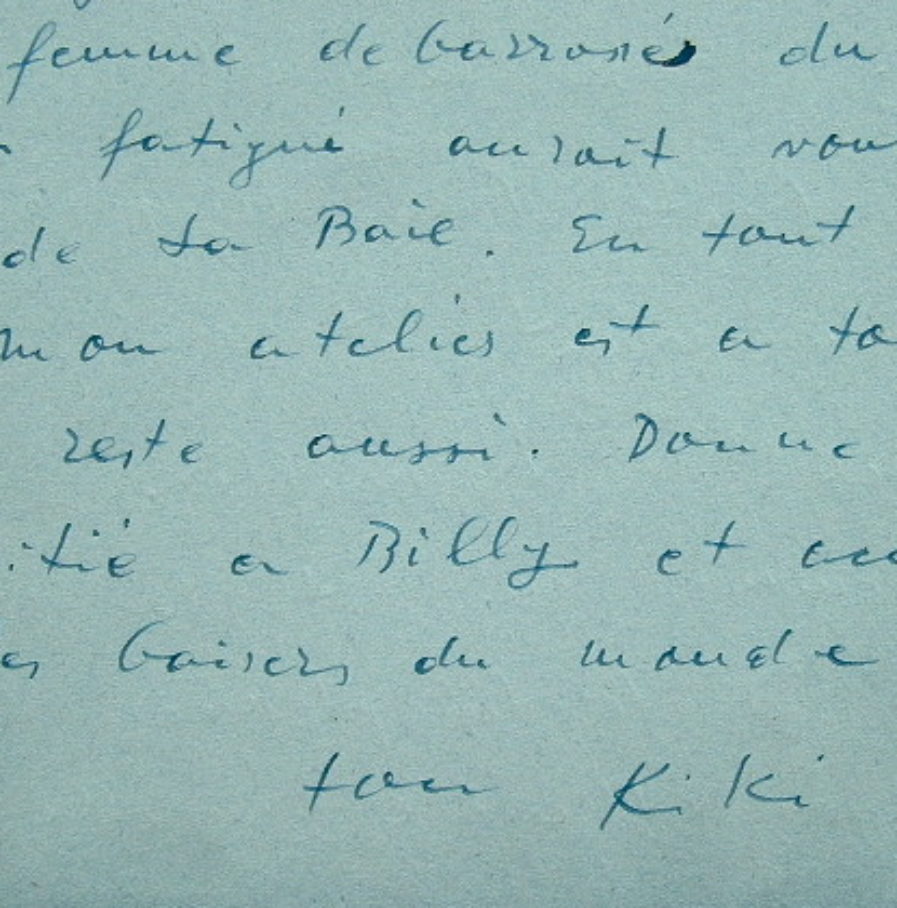 femme debarrosée du
fatigué aurait vou
de ta Baie. En tout
mon atelier est a ta
reste aussi. Donne
itié a Billy et
es baisers du monde
ton Kiki